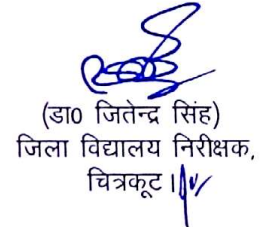 (डा0 जितेन्द्र सिंह)
जिला विद्यालय निरीक्षक,
चित्रकूट।